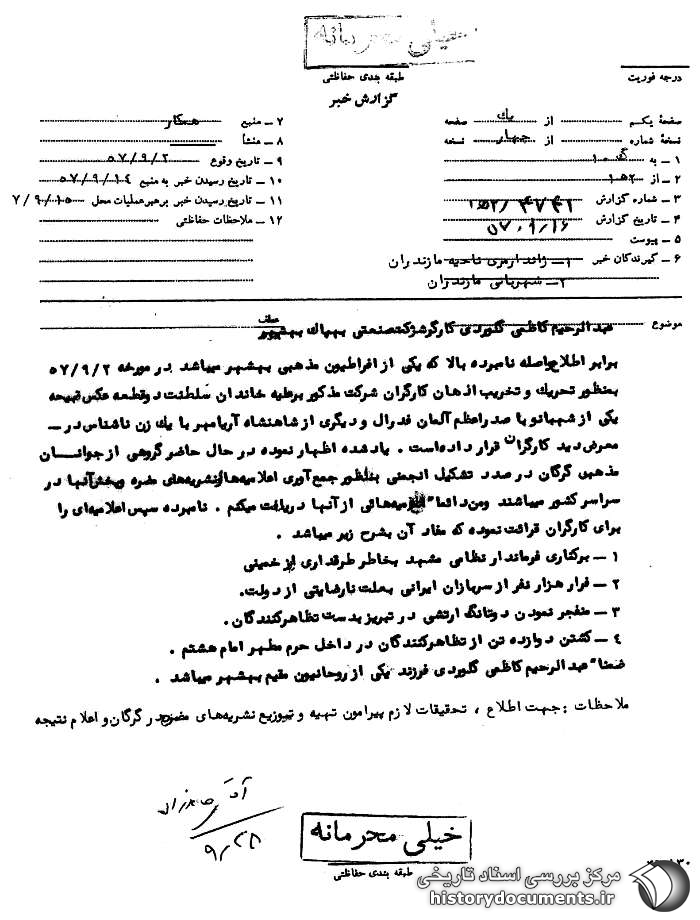 خیلی محرمانه
طبقه بندی حفاظتی
درجه فوریت
گزارش خبر
صفحهٔ یکم از یك صفحه
نسخهٔ شماره از چهار نسخه
۱ ـ به
۲ ـ از ۱۵۲
۳ ـ شماره گزارش ۴۷۴۱/۱۵۲
۴ ـ تاریخ گزارش ۵۷،۹،۱۶
۵ ـ پیوست
۶ ـ گیرندگان خبر ۱ـ ژاندارمری ناحیه مازندران
۲ـ شهربانی مازندران
۷ ـ منبع همکار
۸ ـ منشأ
۹ ـ تاریخ وقوع ۵۷/۹/۲
۱۰ ـ تاریخ رسیدن خبر به منبع ۵۷/۹/۱۴
۱۱ ـ تاریخ رسیدن خبر برهبرعملیات محل ۷/۹/۱۵
۱۲ ـ ملاحظات حفاظتی
موضوع عبدالرحیم کاظمی گلوردی کارگرشرکت صنعتی بهپاك بهشهر
برابر اطلاع واصله نامبرده بالا که یکی از افراطیون مذهبی بهشهر میباشد در مورخه ۵۷/۹/۲
بمنظور تحریك و تخریب اذهان کارگران شرکت مذکور برعلیه خاندان سلطنت دوقطعه عکس قبیحه
یکی از شهبانو با صدراعظم آلمان فدرال و دیگری از شاهنشاه آریامهر با یك زن ناشناس در ـ
معرض دید کارگران قرار داده‌است . یادشده اظهار نموده در حال حاضر گروهی از جوانان
مذهبی گرگان در صدد تشکیل انجمنی بمنظور جمع‌آوری اعلامیه‌ها و نشریه‌های مضره وپخش آنها در
سراسر کشور میباشند ومن دائما" اعلامیه‌هائی از آنها دریافت میکنم . نامبرده سپس اعلامیه‌ای را
برای کارگران قرائت نموده که مفاد آن بشرح زیر میباشد .
۱ ـ برکناری فرماندار نظامی مشهد بخاطر طرفداری از خمینی
۲ ـ فرار هزار نفر از سربازان ایرانی بعلت نارضایتی از دولت.
۳ ـ منفجر نمودن دوتانگ ارتشی در تبریز بدست تظاهرکنندگان.
۴ ـ کشتن دوازده تن از تظاهرکنندگان در داخل حرم مطهر امام هشتم .
ضمنا" عبدالرحیم کاظمی گلوردی فرزند یکی از روحانیون مقیم بهشهر میباشد .
ملاحظات : جهت اطلاع ، تحقیقات لازم پیرامون تهیه و توزیع نشریه‌های مضره در گرگان و اعلام نتیجه
۹/۲۸
خیلی محرمانه
طبقه بندی حفاظتی
مرکز بررسی اسناد تاریخی
historydocuments.ir